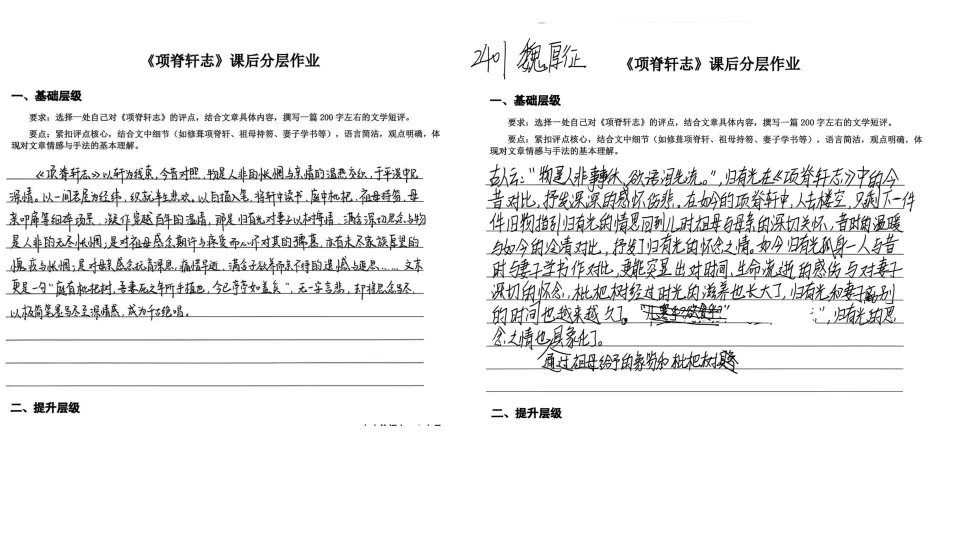 《项脊轩志》课后分层作业
一、基础层级
要求：选择一处自己对《项脊轩志》的评点，结合文章具体内容，撰写一篇 200 字左右的文学短评。
要点：紧扣评点核心，结合文中细节（如修葺项脊轩、祖母持笏、妻子学书等），语言简洁，观点明确，体
现对文章情感与手法的基本理解。
《项脊轩志》以轩为线索，今昔对照，物是人非的怅惘与亲情的温热交织，于平淡中见
深情。以一间老屋为经纬，织就半生悲欢。以白描入笔，将轩中读书，庭中枇杷，祖母持笏，母
亲叩扉等细碎场景，凝作穿越百年的温情，那是归有光对妻子以树寄情，满含深切思念与物
是人非的无尽怅惘；是对祖母感念期许与疼爱而心怀对其的，亦有未尽家族厚望的
愧疚与怅惘；是对母亲感念抚育深恩，痛惜早逝，满含子欲养而亲不待的遗憾与追思……文末
更是一句“庭有枇杷树，吾妻死之年所手植也，今已亭亭如盖矣”，无一字言悲，却将思念写尽，
以极简笔墨写尽至深情感，成为千古绝唱。
二、提升层级
2401 魏厚征
《项脊轩志》课后分层作业
一、基础层级
要求：选择一处自己对《项脊轩志》的评点，结合文章具体内容，撰写一篇 200 字左右的文学短评。
要点：紧扣评点核心，结合文中细节（如修葺项脊轩、祖母持笏、妻子学书等），语言简洁，观点明确，体
现对文章情感与手法的基本理解。
古人云：“物是人非事事休，欲语泪先流。”，归有光在《项脊轩志》中的今
昔对比，抒发深深的感怀伤悲。在如今的项脊轩中，人去楼空，只剩下一件
件旧物指引归有光的情思回到儿时祖母与母亲的深切关怀，昔时的温暖
与如今的冷清对比，抒发了归有光的怀念之情。如今归有光孤身一人与昔
时与妻子学书作对比，更能突显出对时间、生命流逝的感伤与对妻子
深切的怀念，枇杷树经过时光的滋养也长大了，归有光和妻子离别
的时间也越来越久了。”，归有光的思
念之情也具象化了。
通过祖母给予的象笏和枇杷树
二、提升层级